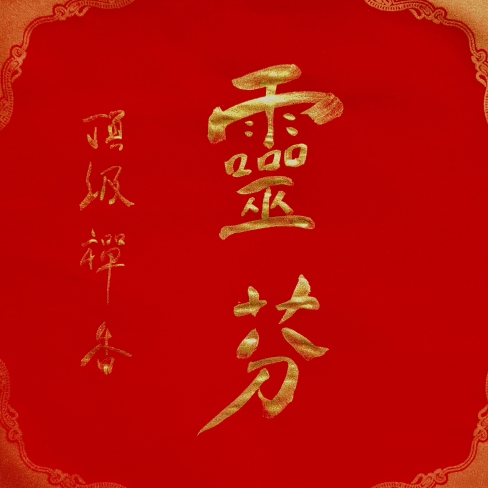 靈芬
頂級禪香